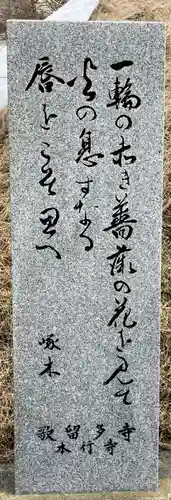 一輪の赤き薔薇の花を見て
火の息すなる
唇をこそ思へ
啄木
歌留多寺
本行寺